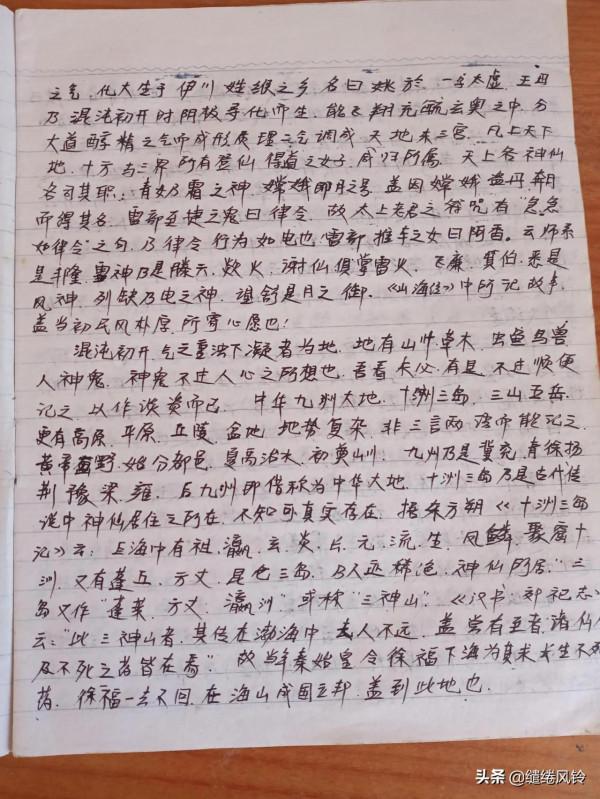 之气,化大生于伊川姓缑之乡,名曰姚於,一名太虚,王母
乃混沌初开时阴极导化而生,能飞翔元亩玄奥之中,分
大道醇精之气而成形质,理二气调成天地未三宫,凡上天下
地,十方与三界所有登仙得道之女子,咸归所属。天上各神仙
各司其职:青女乃霜之神,嫦娥即月之号,盖因嫦娥盗丹奔月
而得其名,雷部至捷之鬼曰律令,故太上老君之符咒有"急急
如律令"之句,乃律令行为如电也,雷部推车之女曰阿香。云师系
是丰隆,雪神乃是滕六,欻火,谢仙俱掌雷火,飞廉,箕伯,悉是
风神,列缺乃电之神,望舒是月之御,《山海经》中所记故事,
盖当初民风朴厚,所寄心愿也!
混沌初开,气之重浊下凝者为地,地有山川草木,虫鱼鸟兽
人神鬼,神鬼不过人心之所想也,吾看未必有是,不过顺便
记之,以作谈资而已。中华九州大地,十洲三岛,三山五岳,
更有高原,平原,丘陵,盆地,地势复杂,非三言两语而能记之,
黄帝画野,始分都邑,夏禹治水,初奠山川:九州乃是冀兖,青徐扬
荆豫梁雍,后九州即借称为中华大地,十洲三岛乃是古代传
说中神仙居住之所在,不知可真实存在,据东方朔《十洲三岛
记》云:上海中有祖,瀛,玄,炎,长,元,流,生,凤鳞,聚窟十
洲,又有蓬丘,方丈,昆仑三岛,乃人迹稀绝,神仙所居,"三
岛又作"蓬莱,方丈,瀛洲"或称"三神山"。《汉书·郊祀志》
云:"此三神山者,其传在渤海中,去人不远,盖尝有至者,诸仙人
及不死之药皆在焉"故当年秦始皇令徐福下海为其求长生不死
药,徐福一去不回,在海山成国立邦,盖到此地也。
头条 @缱绻风铃